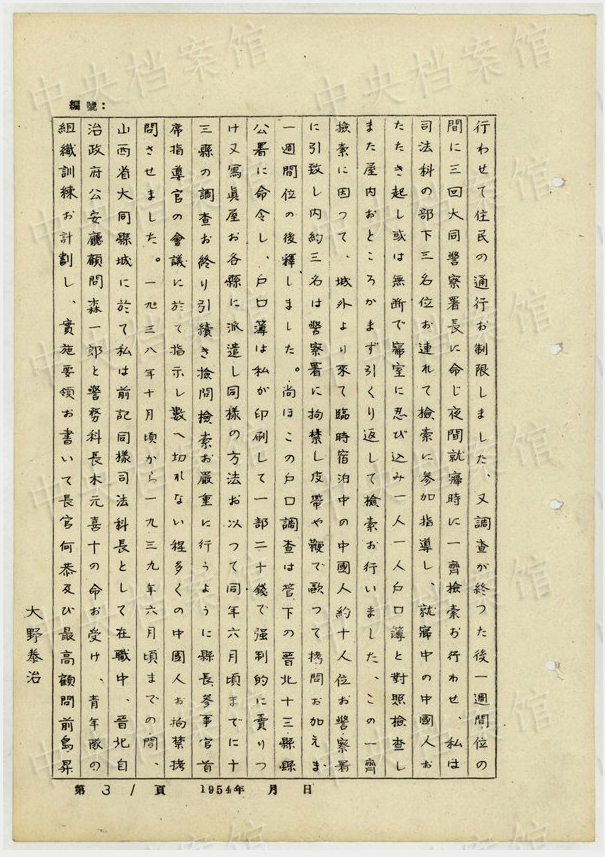 編號：
行わせて住民の通行お制限しました、又調査が終つた後一週間位の
間に三回大同警察署長に命じ夜間就寢時に一齊檢索お行わせ、私は
司法科の部下三名位お連れて檢索に参加指導し、就寢中の中國人お
たたき起し或は無断で寢室に忍び込み一人一人戸口簿と對照檢查し
また屋内おところかまず引くり返して檢索お行いました、この一齊
檢索に因つて、城外より來て臨時宿泊中の中國人約十人位お警察署
に引致し内約三名は警察署に拘禁し皮帶や鞭で歐つて拷問お加えま
一週間位の後釋しました。尚ほこの戸口調査は管下の晋北十三縣縣
公署に命令し、戸口簿は私が印刷して一部二十錢で强制的に賣りつ
け又寫眞屋お各縣に派遣し同様の方法お以つて同年六月頃までに十
三縣の調査お終り引續き檢問檢索お嚴重に行うように縣長参事官首
席指導官の會議に於て指示し數へ切れない程多くの中國人お拘禁拷
問させました。一九三八年十月頃から一九三九年六月頃までの間、
山西省大同縣城に於て私は前記同様司法科長として在職中 晋北自
治政府公安廳顧問森一郎と警務科長木元喜十の命お受け、青年隊の
組織訓練お計劃し、實施要領お書いて長官何恭及び最高顧問前島昇
大野泰治
第 31 頁 1954年 月 日
中央档案馆